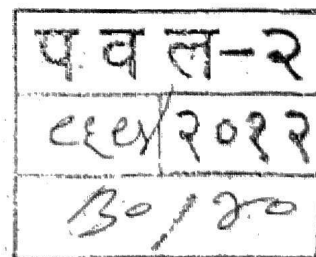 प व ल-२
८६८५/२०१२
३०/४०